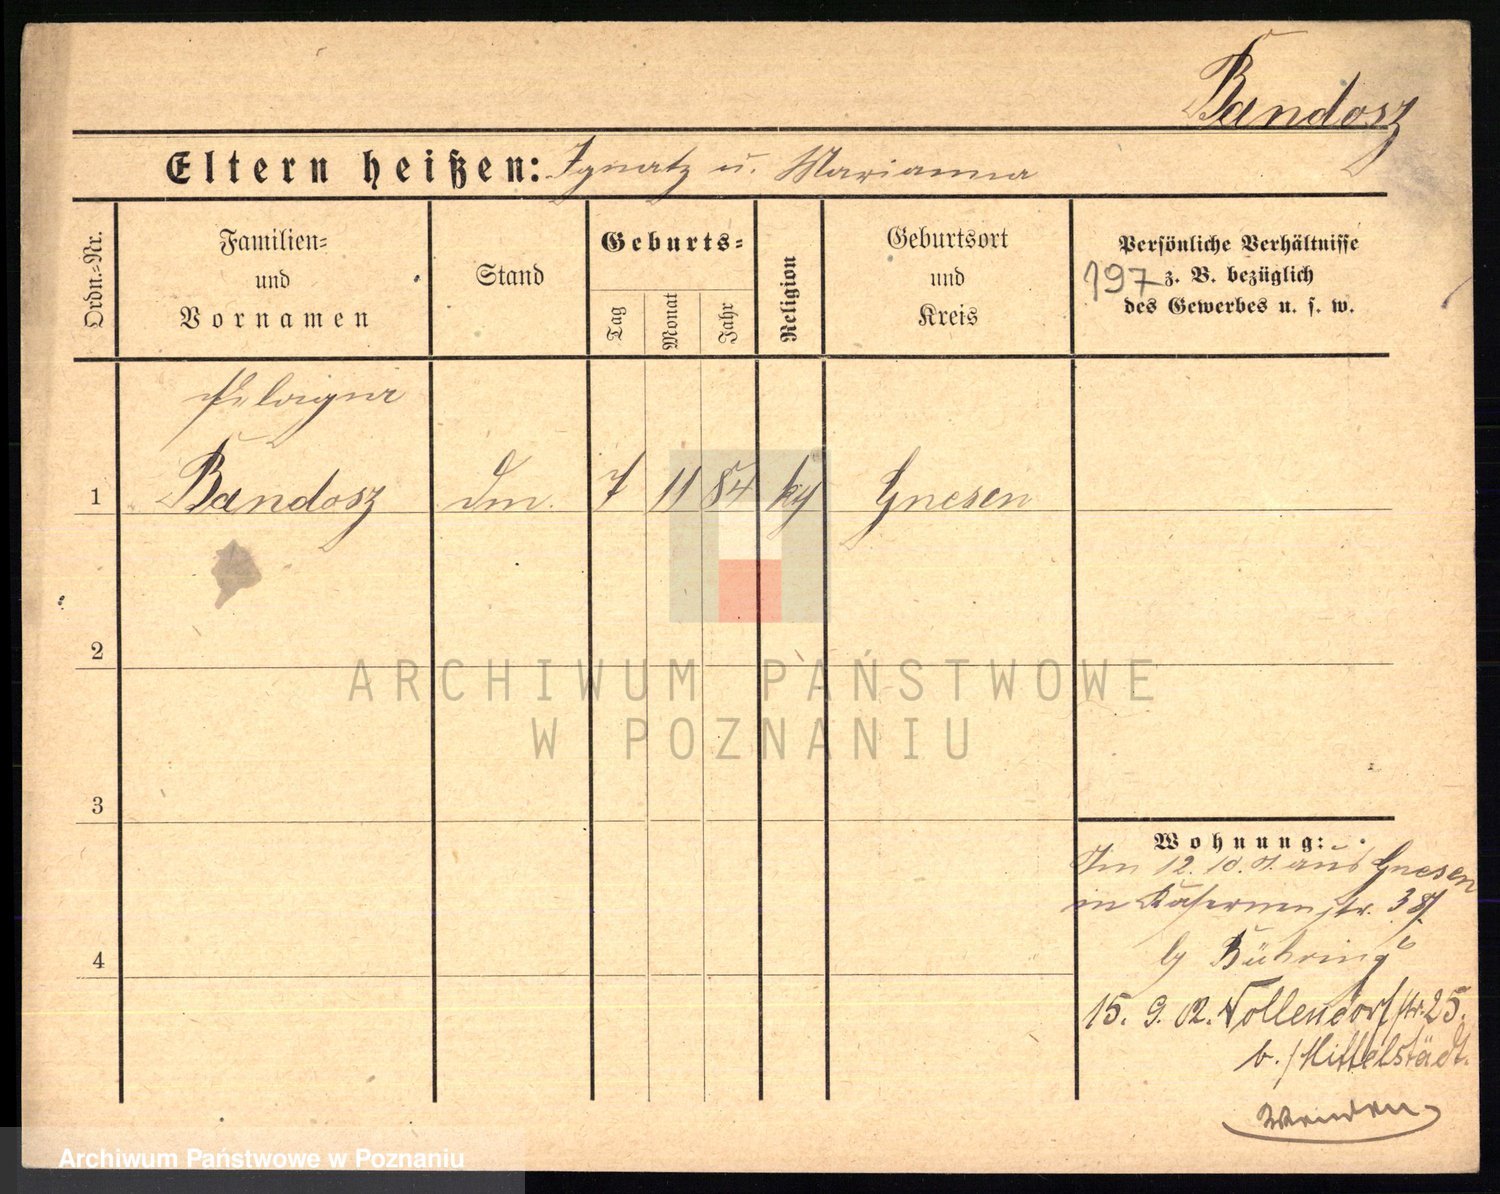 Bandosz
Eltern heißen: Ignatz u. Marianna
Ordn.-Nr.
Familien-
und
Vornamen
Stand
Geburts-
Tag
Monat
Jahr
Religion
Geburtsort
und
Kreis
Persönliche Verhältnisse
197 z. B. bezüglich
des Gewerbes u. s. w.
Pelagia
1 Bandosz Dm. 7 11 84 kg Gnesen
2
3
4
Wohnung:
12. 10. aus Gnesen
in Kasernenstr. 38/
by Bühring
15. 9. 02. Nollendorfstr. 25.
b. Mittelstädt.
ARCHIWUM PAŃSTWOWE
W POZNANIU
Archiwum Państwowe w Poznaniu